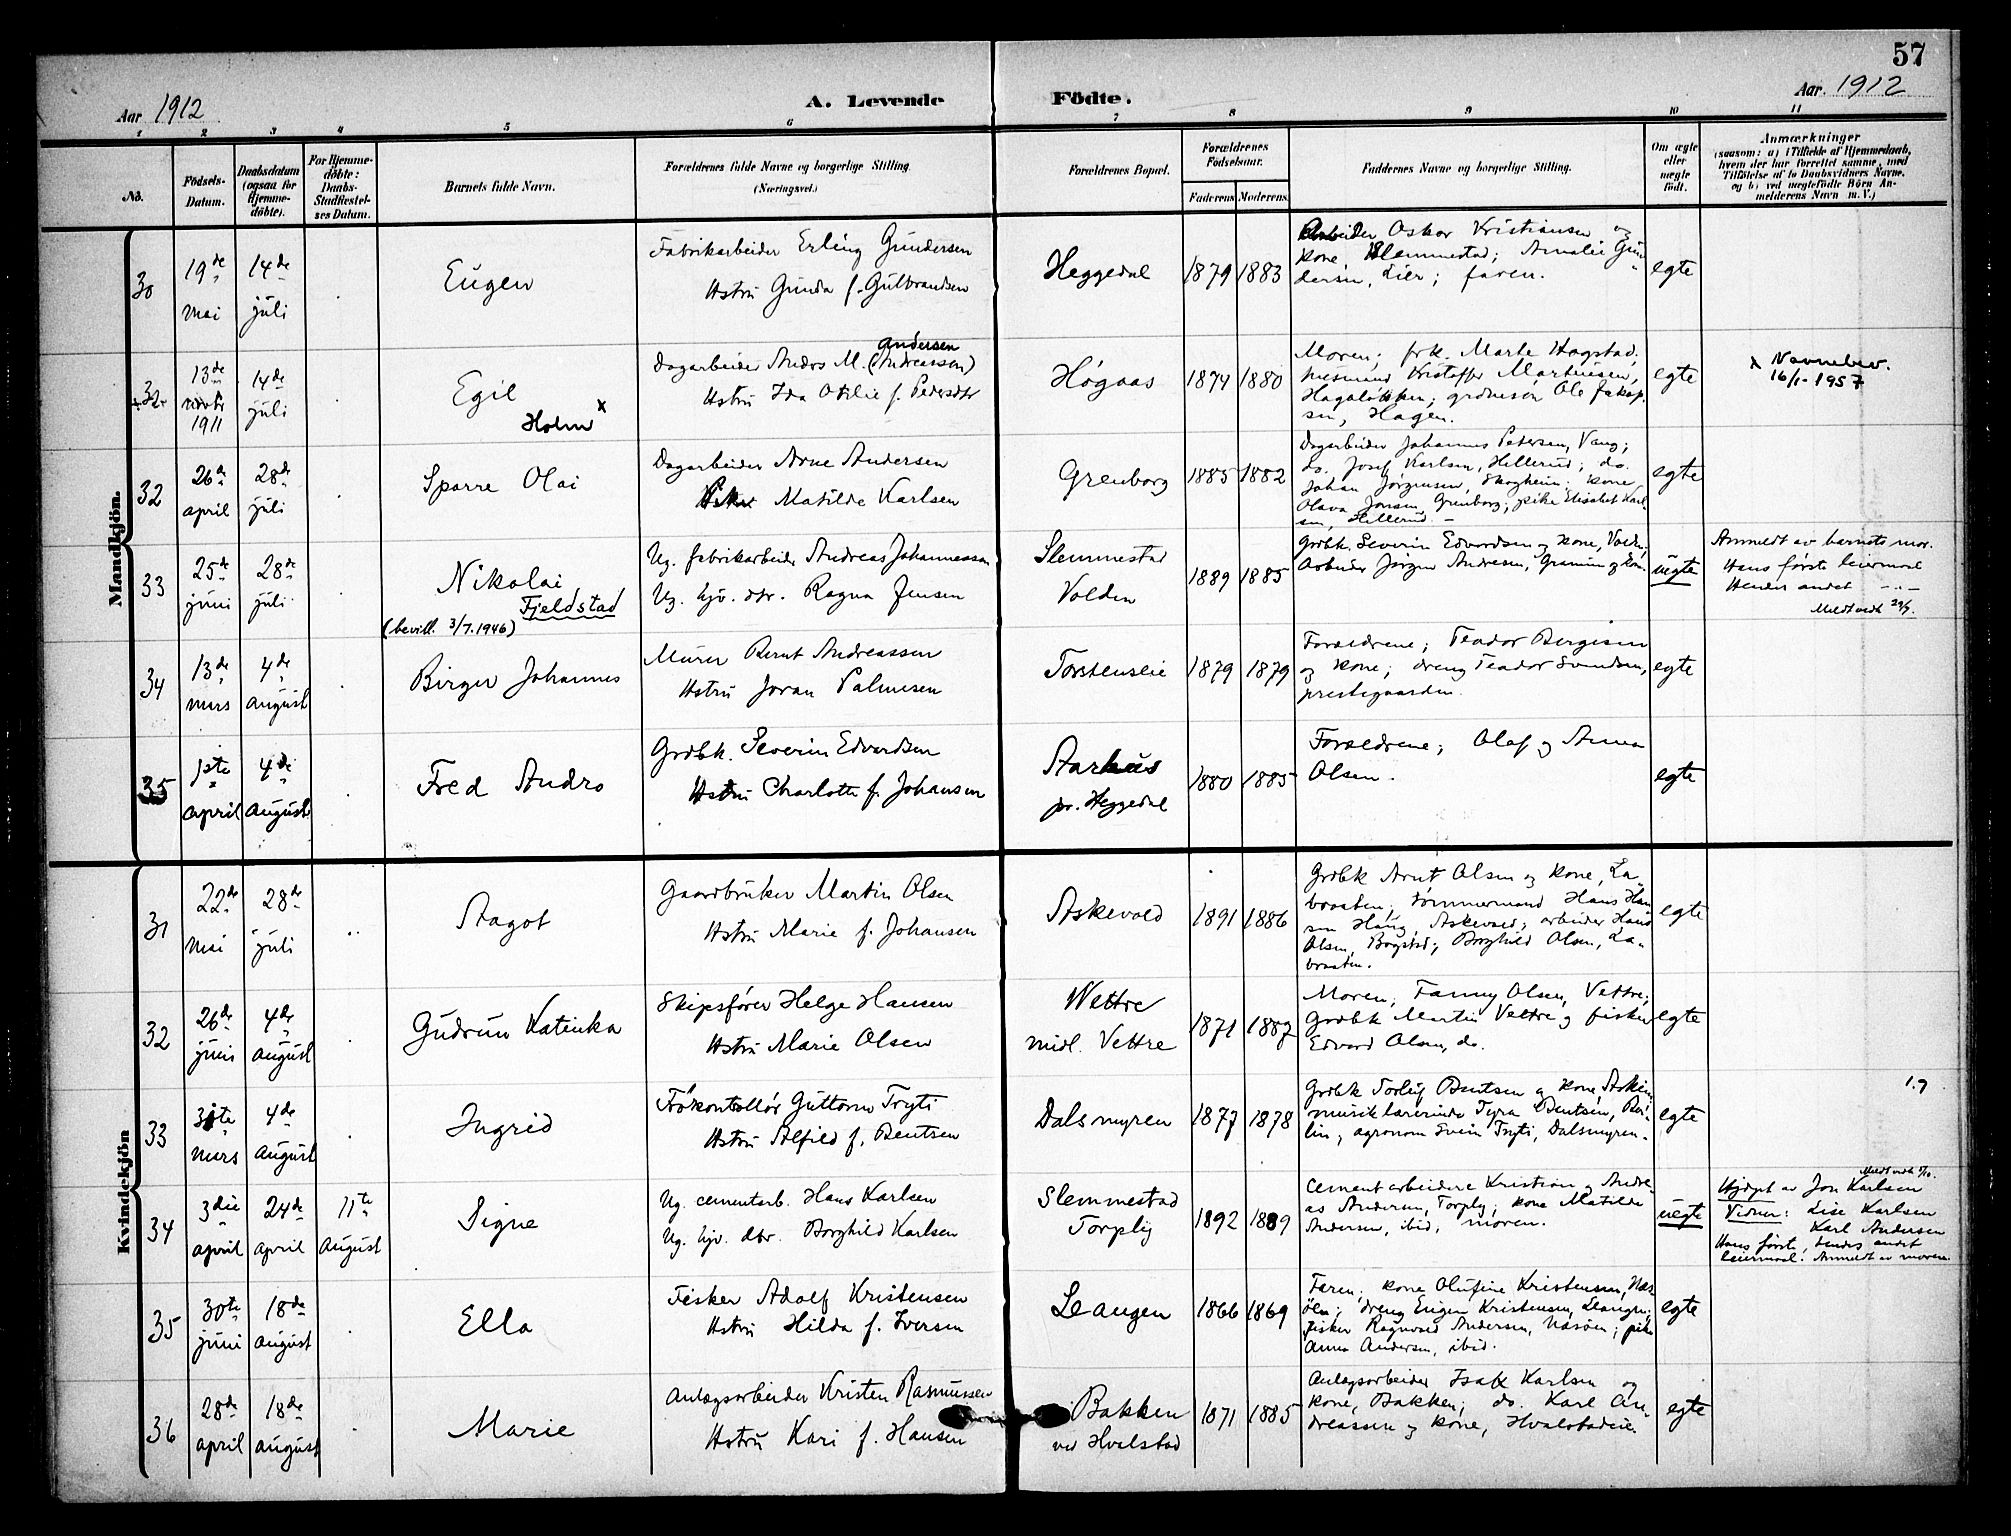 57
Aar 1912
A. Levende Födte.
Aar. 1912
1 2 3 4 5 6 7 8 9 10 11
No.
Födsels-Datum.
Daabsdatum (ogsaa for Hjemme-döbte).
For Hjemme-döbte: Daabs-Stadfæstel-ses Datum.
Barnets fulde Navn.
Forældrenes fulde Navne og borgerlige Stilling. (Næringsvei.)
Forældrenes Bopæl.
Forældrenes Födselsaar.
Faderens Moderens.
Faddernes Navne og borgerlige Stilling.
Om ægte eller uægte födt.
Anmærkninger
(saasom: a) i Tilfælde af Hjemmedaab, hvem der har forrettet samme, med Tilföielse af to Daabsvidners Navne. og b) ved uægtefödte Börn An-melderens Navn m. V.)
Mandkjön.
30 19de mai 14de juli Eugen
Fabrikarbeider Erling Gundersen
Hstru Gunda f. Gulbrandsen
Heggedal 1879 1883
Arbeider Oskar Kristiansen og
kone, Slemmestad; Amalie Gun-
dersen, Lier; faren.
egte
13de novbr 1911 14de juli Egil Holm x
Dagarbeider Andrs M. (Andreassen) Andersen
Hstru Ida Otilie f. Pedersdtr
Högaas 1874 1880
Moren; frk. Marte Hogstad;
husmand Kristoffer Martinsen,
Hagalökken; grdmesön Ole Jakop-
sen, Hagen.
egte
x Navnebev.
16/1-1957
32 26de april 28de juli Sparre Olai
Dagarbeider Arne Andersen
Matilde Karlsen
Grenborg 1885 1882
Dagarbeider Johannes Petersen, Vang;
do. Josef Karlsen, Hillerud; do.
Johan Jörgensen, Skogheim; kone
Olava Jonsen, Grenborg; pike Elisabet Karl-
sen, Hillerud.
egte
33 25de juni 28de juli Nikolai Fjeldstad
(bevill. 3/7.1946)
Ug. fabrikarbeider Andreas Johannessen
Ug. hjv. dtr. Ragna Jensen
Slemmestad
Volden
1889 1885
Grdbk. Severin Edvardsen og kone, Volden;
Arbeider Jörgen Andresen, Granum og kone
uegte
Anmeldt av barnets mor.
Hans förste leiermaal
Hendes andet -"-
Meldt vedk 29/7.
34 13de mars 4de august Birger Johannes
Murer Bernt Andreassen
Hstru Joran Palmesen
Torstenseie 1879 1879
Foreldrene; Teodor Bergesen
og kone; dreng Teodor Svendsen,
prestegaarden.
egte
35 1ste april 4de august Fred Andrs
Grdbk. Severin Edvardsen
Hstru Charlotte f. Johansen
Aarhus
pr. Heggedal
1880 1885
Foreldrene; Olaf og Anna
Olsen.
egte
Kvindekjön
31 22de mai 28de juli Aagot
Gaardbruker Martin Olsen
Hstru Marie f. Johansen
Askevold 1891 1886
Grdbk Arnt Olsen og kone, La-
braaten; tömmermand Hans Han-
sen Haug, Askevold; arbeider Hans
Olsen, Bogstad; Borghild Olsen, La-
braaten.
egte
32 26de juni 4de august Gudrun Katinka
Skipsförer Helge Hansen
Hstru Marie Olsen
Wettre
midl. Vettre
1871 1882
Moren; Fanny Olsen, Vettre;
Grdbk Martin Vettre og fisker
Edvard Olsen, do.
egte
33 31te mars 4de august Ingrid
Guttorm Tryti
Hstru Alfild f. Bentsen
Dalsmyren 1877 1878
Grdbk Torleif Bentsen og kone, Asker;
musiklærerinde Tyra Bentsen, Ber-
lin; agronom Svein Tryti, Dalsmyren.
egte
34 3die april 24de april 11te August Signe
Ug. cementarb. Hans Karlsen
Ug. hjv. dtr. Borghild Karlsen
Slemmestad
Torplig
1892 1889
Cementarbeidere Kristian og Andre-
as Andersen, Torplig; kone Matilde
Andersen, ibid; moren.
uegte
Hjdpt av Jon Karlsen
Vidner: Lise Karlsen
Karl Andersen
Hans förste, hendes andet
leiermaal. Anmeldt av moren
35 30te juni 18de august Ella
Fisker Adolf Kristensen
Hstru Hilda f. Iversen
Leangen 1866 1869
Faren; kone Olufine Kristensen, Næs-
öen; dreng Eugen Kristensen, Leangen;
fisker Ragnvald Andersen, Næsöen; pike
Anna Andersen, ibid.
egte
36 28de april 18de august Marie
Anlægsarbeider Kristen Rasmussen
Hstru Kari f. Hansen
Bakken
ved Hvalstad
1871 1885
Anlægsarbeider Isak Karlsen og
kone, Bakken; do. Karl An-
dreassen og kone, Hvalstadeie.
egte